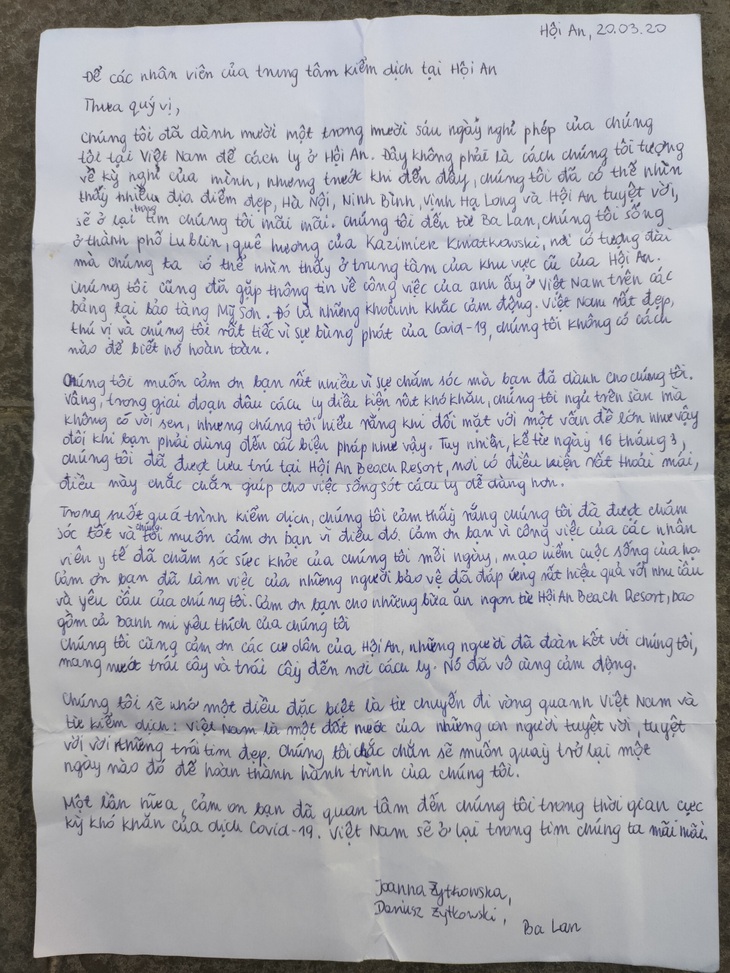 Hội An, 20.03.20
Để các nhân viên của trung tâm kiểm dịch tại Hội An
Thưa quý vị,
Chúng tôi đã dành mười một trong mười sáu ngày nghỉ phép của chúng
tôi tại Việt Nam để cách ly ở Hội An. Đây không phải là cách chúng tôi tưởng tượng
về kỳ nghỉ của mình, nhưng trước khi đến đây, chúng tôi đã có thể nhìn
thấy nhiều địa điểm đẹp, Hà Nội, Ninh Bình, Vịnh Hạ Long và Hội An tuyệt vời,
sẽ ở lại trong tim chúng tôi mãi mãi. Chúng tôi đến từ Ba Lan, chúng tôi sống
ở thành phố Lublin, quê hương của Kazimiek Kwatkowski, nơi có tượng đài
mà chúng ta có thể nhìn thấy ở trung tâm của khu vực cũ của Hội An.
Chúng tôi cũng đã gặp thông tin về công việc của anh ấy ở Việt Nam trên các
bảng tại bảo tàng Mỹ Sơn. Đó là những khoảnh khắc cảm động. Việt Nam rất đẹp,
thú vị và chúng tôi rất tiếc vì sự bùng phát của Covid-19, chúng tôi không có cách
nào để biết nó hoàn toàn.
Chúng tôi muốn cảm ơn bạn rất nhiều vì sự chăm sóc mà bạn đã dành cho chúng tôi.
Vâng, trong giai đoạn đầu cách ly điều kiện rất khó khăn, chúng tôi ngủ trên sàn mà
không có vòi sen, nhưng chúng tôi hiểu rằng khi đối mặt với một vấn đề lớn như vậy
đôi khi bạn phải dùng đến các biện pháp như vậy. Tuy nhiên, kể từ ngày 16 tháng 3,
chúng tôi đã được lưu trú tại Hội An Beach Resort, nơi có điều kiện rất thoải mái,
điều này chắc chắn giúp cho việc sống sót cách ly dễ dàng hơn.
Trong suốt quá trình kiểm dịch, chúng tôi cảm thấy rằng chúng tôi đã được chăm
sóc tốt và chúng tôi muốn cảm ơn bạn vì điều đó. Cảm ơn bạn vì công việc của các nhân
viên y tế đã chăm sóc sức khỏe của chúng tôi mỗi ngày, mạo hiểm cuộc sống của họ.
Cảm ơn bạn đã làm việc của những người bảo vệ đã đáp ứng rất hiệu quả với nhu cầu
và yêu cầu của chúng tôi. Cảm ơn bạn cho những bữa ăn ngon từ Hội An Beach Resort, bao
gồm cả Banh mi yêu thích của chúng tôi
Chúng tôi cũng cảm ơn các cư dân của Hội An, những người đã đoàn kết với chúng tôi,
mang nước trái cây và trái cây đến nơi cách ly. Nó đã vô cùng cảm động.
Chúng tôi sẽ nhớ một điều đặc biệt là từ chuyến đi vòng quanh Việt Nam và
từ kiểm dịch: Việt Nam là một đất nước của những con người tuyệt vời, tuyệt
vời với những trái tim đẹp. Chúng tôi chắc chắn sẽ muốn quay trở lại một
ngày nào đó để hoàn thành hành trình của chúng tôi.
Một lần nữa, cảm ơn bạn đã quan tâm đến chúng tôi trong thời gian cực
kỳ khó khăn của dịch Covid-19. Việt Nam sẽ ở lại trong tim chúng ta mãi mãi.
Joanna Żytkowska,
Dariusz Żytkowski,
Ba Lan